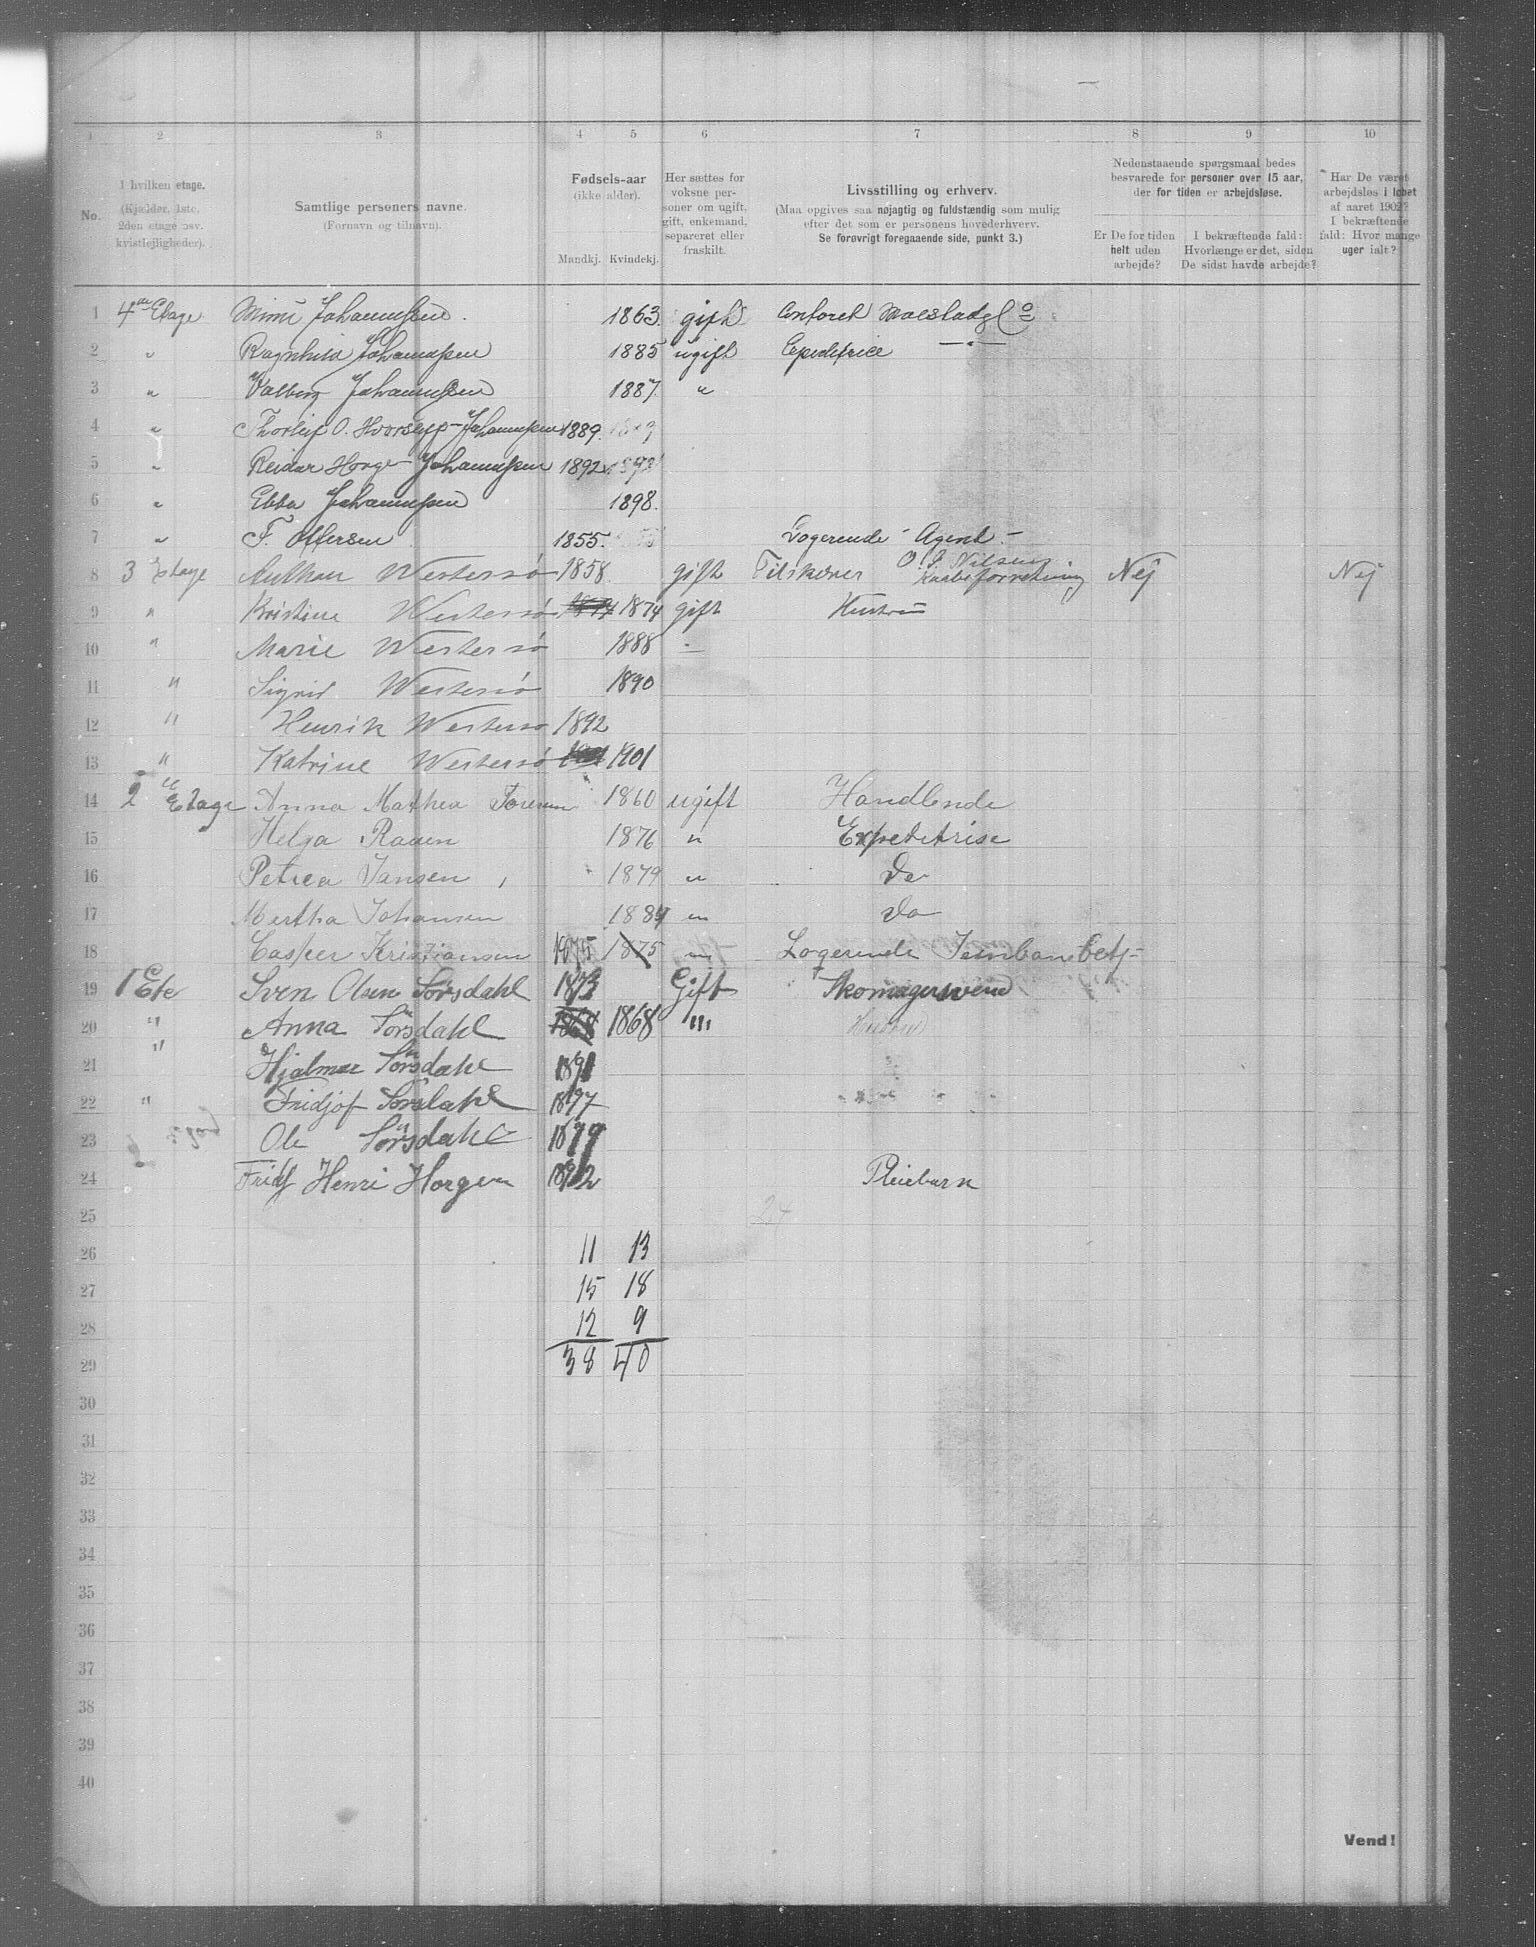 1 2 3 4 5 6 7 8 9 10
No.
I hvilken etage.
(Kjælder, 1ste,
2den etage osv.
kvistlejligheder).
Samtlige personers navne.
(Fornavn og tilnavn).
Fødsels-aar
(ikke alder).
Mandkj. Kvindekj.
Her sættes for
voksne per-
soner om ugift,
gift, enkemand,
separeret eller
fraskilt.
Livsstilling og erhverv.
(Maa opgives saa nøjagtig og fuldstændig som mulig
efter det som er personens hovederhverv.
Se forøvrigt foregaaende side, punkt 3.)
Nedenstaaende spørgsmaal bedes
besvarede for personer over 15 aar,
der for tiden er arbejdsløse.
Er De for tiden
helt uden
arbejde?
I bekræftende fald:
Hvorlænge er det, siden
De sidst havde arbejde?
Har De været
arbejdsløs i løbet
af aaret 1902?
I bekræftende
fald: Hvor mange
uger ialt?
1 4de Etage Mimi Johannessen. 1863. gift
2 " Ragnhild Johannessen 1885 ugift Expeditrice —"—
3 " Valborg Johannessen 1887. "
4 " Thorleif O. Johannessen 1889.
5 " Reidar Johannessen 1892
6 " Ebba Johannessen 1898.
7 " F. Offersen 1855. Logerende - Agent -
8 3 Etage Westersø 1858 gift Tilskærer O. J. Nilsens Kaabeforretning Nej Nej
9 " Kristine Westersø 1874 gift Hustru
10 " Marie Westersø 1888 -
11 " Sigrid Westersø 1890
12 " Henrik Westersø 1892
13 " Katrine Westersø 1901
14 2 Etage Anna Mathea 1860 ugift Handlende
15 Helga Raaen 1876 " Expeditrise
16 Petrea Jansen 1879 " Do
17 Martha Johansen 1884 " Do
18 Casper Kristiansen 1875 1875 " Logerende Jernbanebetj-
19 1 Ete Sven Olsen Sørsdahl 1873 Gift Skomagersvend
20 " Anna Sørsdahl 1868 1868 "' Hustru
21 " Hjalmar Sørsdahl 1891
22 " Fridjof Sørsdahl 1897
23 Ole Sørsdahl 1879
24 Fridf Henri Horgen Pleiebarn
25 24
26 11 13
27 15 18
28 12 9
29 38 40
30
31
32
33
34
35
36
37
38
39
40
Vend!